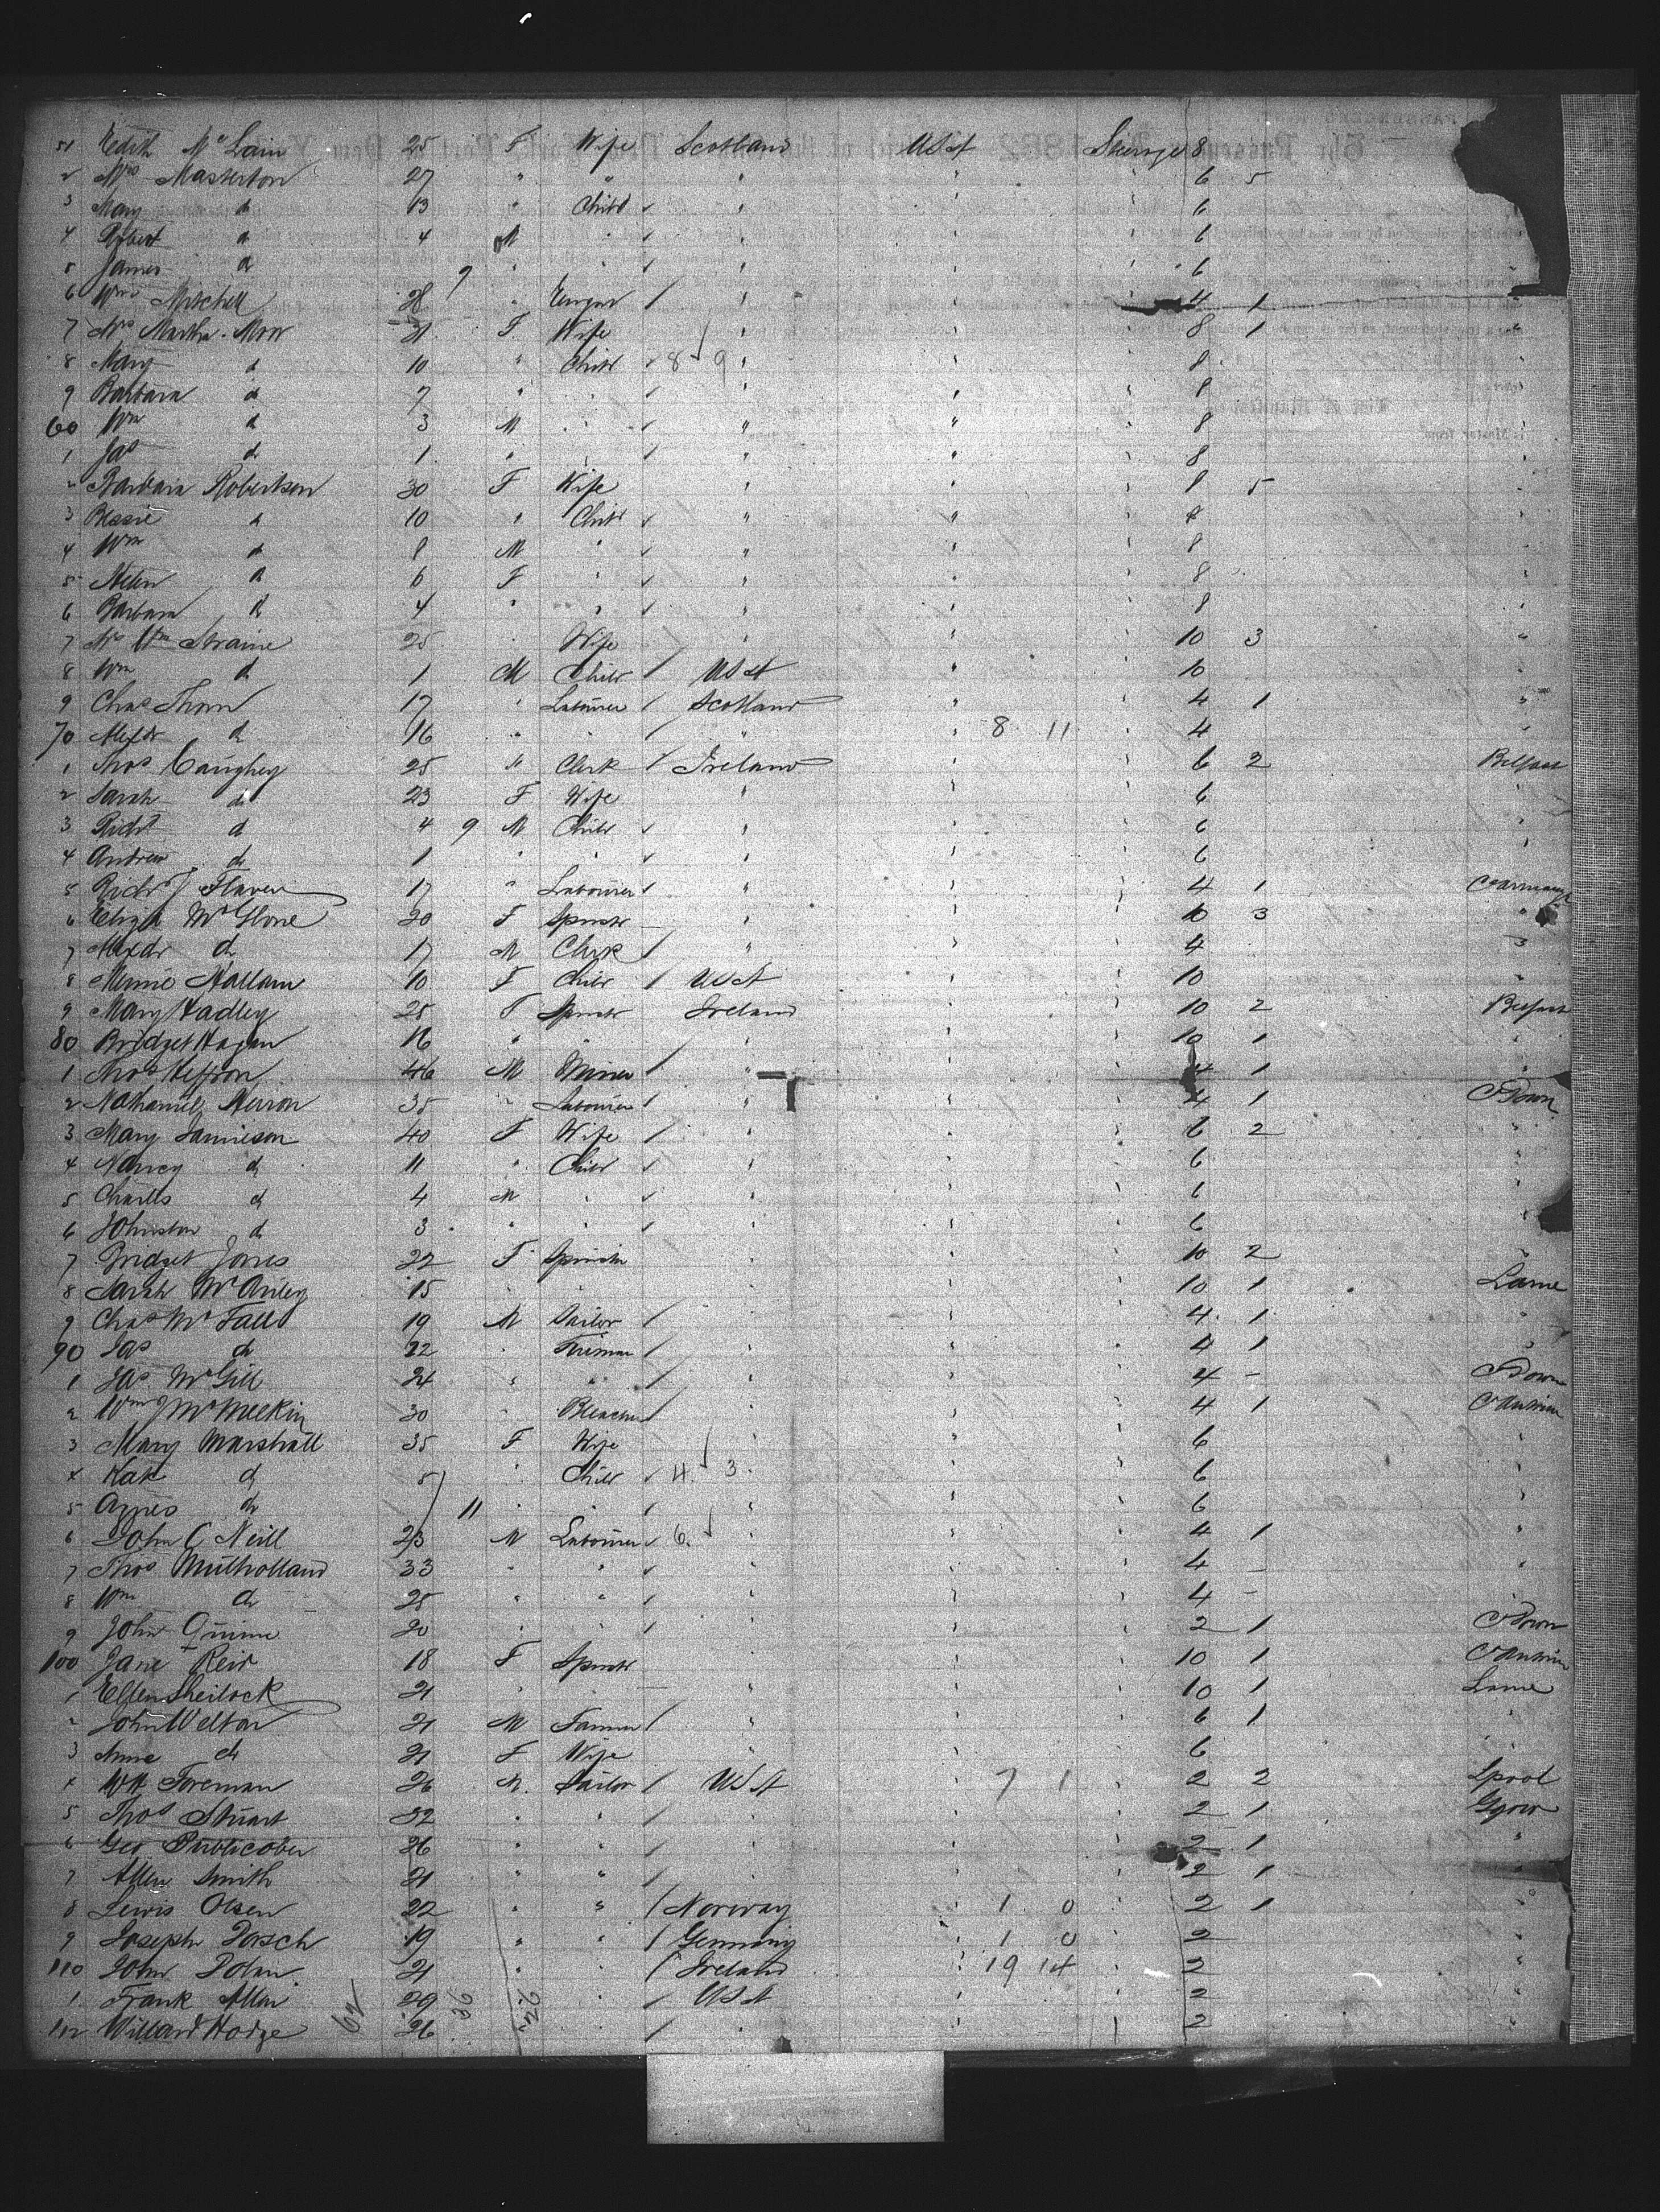 51 Edith Mc Lain 25 F Wife Scotland USA Steerage 8
2 Mrs Masterton 27 " " " " 6 5
3 Mary d 13 " Child " 6
4 Robert d 4 M " " 6
5 James d 9 " " " 6
6 Wm Mitchell 28 " " 4 1
7 Mrs Martha 31 F Wife 8 1
8 Mary d 10 " Child 8 9 " 8
9 Barbara d 7 " " " 8
60 Wm d 3 M " " " 8
1 Jas d 1 " " " " 8
2 Barbara Robertson 30 F Wife " " 8 5
3 Bessie d 10 " Child " " 8
4 Wm d 8 M " " " 8
5 Helen d 6 F " " " 8
6 Barbara d 4 " " " " 8
7 Mrs Wm 25 " Wife " " 10 3 "
8 Wm d 1 M Child USA " 10
9 Chas Thom 17 " Labourer Scotland " 4 1 "
70 Alexdr d 16 " " " " 8 11 4
1 Thos Caughey 25 " Clerk Ireland " 6 2 Belfast
2 Sarah d 23 F Wife " " 6 "
3 Richd d 4 9 M Child " " 6 "
4 Andrew d 1 " " " " 6 "
5 Richd J Flaven 17 " Labourer " " 4 1
6 Eliza McGlone 20 F Spinstr " " 10 3 "
7 Alexdr d 17 M Clerk " " 4 "
8 Minnie Hallam 10 F Child USA " 10 "
9 Mary Hadley 25 F Spinstr Ireland " 10 2 Belfast
80 Bridget Hagan 16 " " " " 10 1 "
1 Thos Heffron 46 M Miner " " 4 1 "
2 Nathaniel Herron 35 " Labourer " " 4 1 Co Down
3 Mary Jamieson 40 F Wife " " 6 2 "
4 Nancy d 11 " Child " " 6 "
5 Charles d 4 M " " " 6 "
6 Johnston d 3 " " " " 6 "
7 Bridget Jones 22 F Spinstr " " 10 2 "
8 Sarah 15 " " " " 10 1 Larne
9 Chas McFall 19 M Sailor " " 4 1 "
90 Jas d 22 " Fireman " " 4 1 "
1 Jas McGill 24 " " " " 4 - Co Down
2 Wm J McMeekin 30 " Bleacher " " 4 1 Co Antrim
3 Mary Marshall 35 F Wife " " 6 "
4 Kate d 5 " Child 4 3 " 6 "
5 Agnes d 11 " " " " 6 "
6 John O Neill 23 M Labourer 6 " " 4 1 "
7 Thos Mulholland 33 " " " " 4 - "
8 Wm d 25 " " " " 4 - "
9 John Quinn 20 " " " " 2 1 Co Down
100 Jane Reid 18 F Spinstr " " 10 1 Co Antrim
1 Ellen Sheilock 21 " " " " 10 1 Larne
2 John Welton 21 M Farmer " " 6 1 "
3 Anne d 21 F Wife " " 6 "
4 Wm Foreman 26 M Sailor USA " 7 1 2 2 Lpool
5 Thos Stuart 32 " " " " 2 1 Glgow
6 Geo Publicover 26 " " " " 2 1 "
7 Allen Smith 21 " " " " 2 1 "
8 Lewis Olsen 22 " " Norway " 1 0 2 1 "
9 Joseph Dorsch 19 " " Germany " 1 0 2 "
110 John Dolan 21 " " Ireland " 19 14 2 "
1 Frank Allen 29 " " USA " 2 "
112 Willard Hodge 26 " " " " 2 "
62 36 26